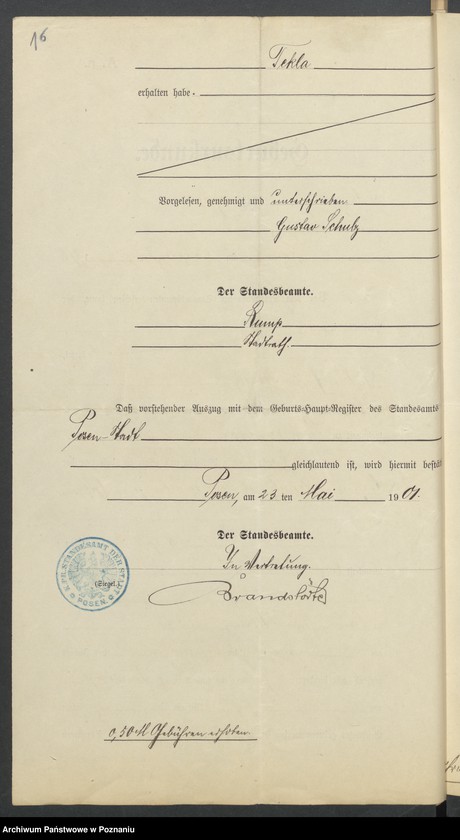 16
Tekla
erhalten habe.
Vorgelesen, genehmigt und unterschrieben
Gustav Schulz
Der Standesbeamte.
Rump
Stadtrath.
Daß vorstehender Auszug mit dem Geburts-Haupt-Register des Standesamts
Posen-Stadt
gleichlautend ist, wird hiermit bestä
Posen, am 23 ten Mai 1901.
Der Standesbeamte.
In Vertretung.
(Siegel.)
K. PR. STANDESAMT DER STADT POSEN
0,50 M Gebühren erhoben.
Archiwum Państwowe w Poznaniu